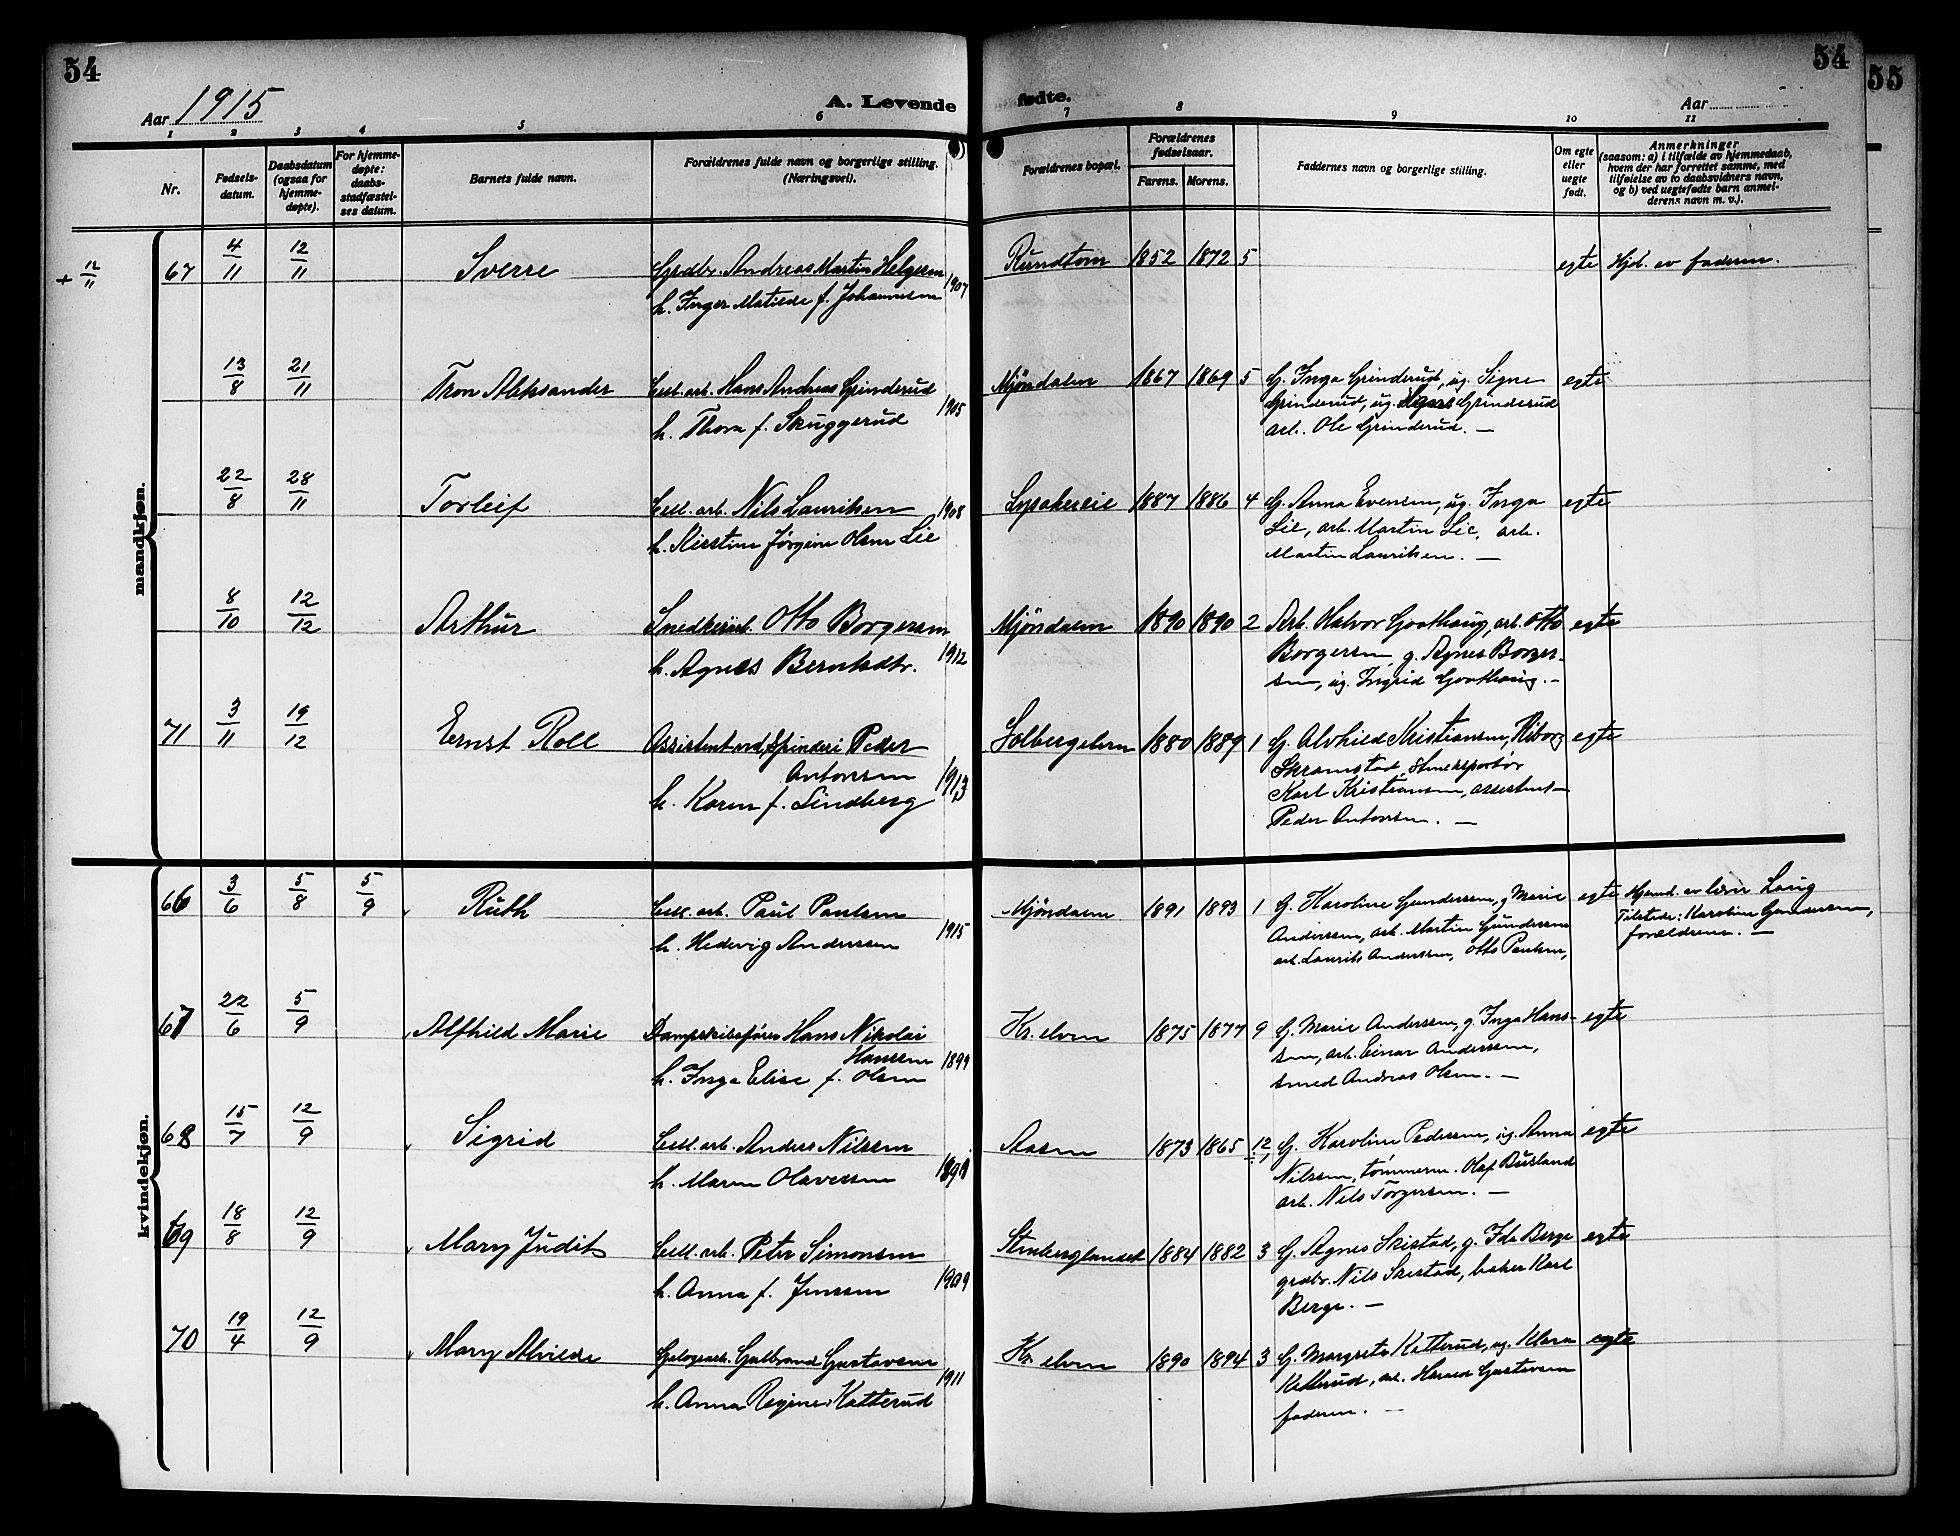 54
Aar 1915
A. Levende
1 2 3 4 5 6
Nr.
Fødsels-
datum.
Daabsdatum
(ogsaa for
hjemme-
døpte).
For hjemme-
døpte:
daabs-
stadfæstel-
ses datum.
Barnets fulde navn.
Forældrenes fulde navn og borgerlige stilling.
(Næringsvei).
54
55
fødte.
Aar
7 8 9 10 11
Forældrenes bopæl.
Forældrenes
fødselsaar.
Farens. Morens.
Faddernes navn og borgerlige stilling.
Om egte
eller
uegte
født.
Anmerkninger
(saasom: a) i tilfælde av hjemmedaab,
hvem der har forrettet samme, med
tilføielse av to daabsvidners navn,
og b) ved uegtefødte barn anmel-
derens navn m. v.).
mandkjøn.
+ 12/11 67 4/11 12/11 Sverre Grdbr. Andreas Martin Helgesen
h. Inger Matilde f. Johannesen 1907
Rundtom 1852 1872 5 egte Hjd. av faderen.
13/8 21/11 Tron Aleksander Cell. arb. Hans Andreas Grinderud
h. Thora f. Skuggerud 1905
Mjøndalen 1867 1869 5 G. Inga Grinderud, ug. Signe egte
Grinderud, ug. Grinderud
arb. Ole Grinderud. —
22/8 28/11 Torleif Cell. arb. Nils Lauritsen 1908
h. Kirstine Jørgine Olsen Lie
1887 1886 4 G. Anna Evensen, ug. Inga egte
Lie, arb. Martin Lie, arb.
Martin Lauritsen. —
8/10 12/12 Arthur Otto Borgersen
h. Agnes Berntsdtr. 1912
Mjøndalen 1890 1890 2 Arb. Halvor Goothaug, arb. Otto egte
Borgersen, g. Agnes Borger-
sen, ug. Ingrid Goothaug. —
71 3/11 19/12 Ernst Roll Assistent ved Spinderi Peder
Antonsen
h. Karen f. Lindberg 1913
Solbergelven 1880 1889 1 G. Alvhild Kristiansen, egte
Skramstad,
Karl Kristiansen, assistent
Peder Antonsen. —
kvindekjøn.
66 3/6 5/8 5/9 Ruth Cell. arb. Paul Paulsen
h. Hedevig Andersen 1915
Mjøndalen 1891 1893 1 G. Karoline Gundersen, g. Marie egte Hjemd. av
Andersen, arb. Martin Gundersen Tilstede: Karoline Gundersen,
arb. Laurits Andersen, Otto Paulsen, forældrene. —
67 22/6 5/9 Alfhild Marie Dampskibsfører Hans Nikolai
Hansen
h. Inga Elise f. Olsen 1899
Kr. elven 1875 1877 9 G. Marie Andersen, g. Inga Han- egte
sen, arb. Einar Andersen,
smed Andreas Olsen. —
68 15/7 12/9 Sigrid Cell. arb. Anders Nilssen
h. Maren Olavessen
Aasen 1873 1865 12 G. Karoline Pedersen, ug. Anna egte
Nilssen, tømmerm. Olaf Busland
arb. Nils Torgersen. —
69 18/8 12/9 Mary Judit Cell. arb. Peter Simonsen
h. Anna f. Jensen 1909
Stenberglandet 1884 1882 3 G. Agnes Skistad, g. Ida Berge egte
grdbr. Nils Skistad, baker Karl
Berge. —
70 19/4 12/9 Mary Alvilde Gulbrand Gustavsen
h. Anna Regine Katterud 1911
Kr. elven 1890 1894 3 G. Margrete Katterud, ug. Klara egte
Katterud, arb. Harald Gustavsen
faderen. —